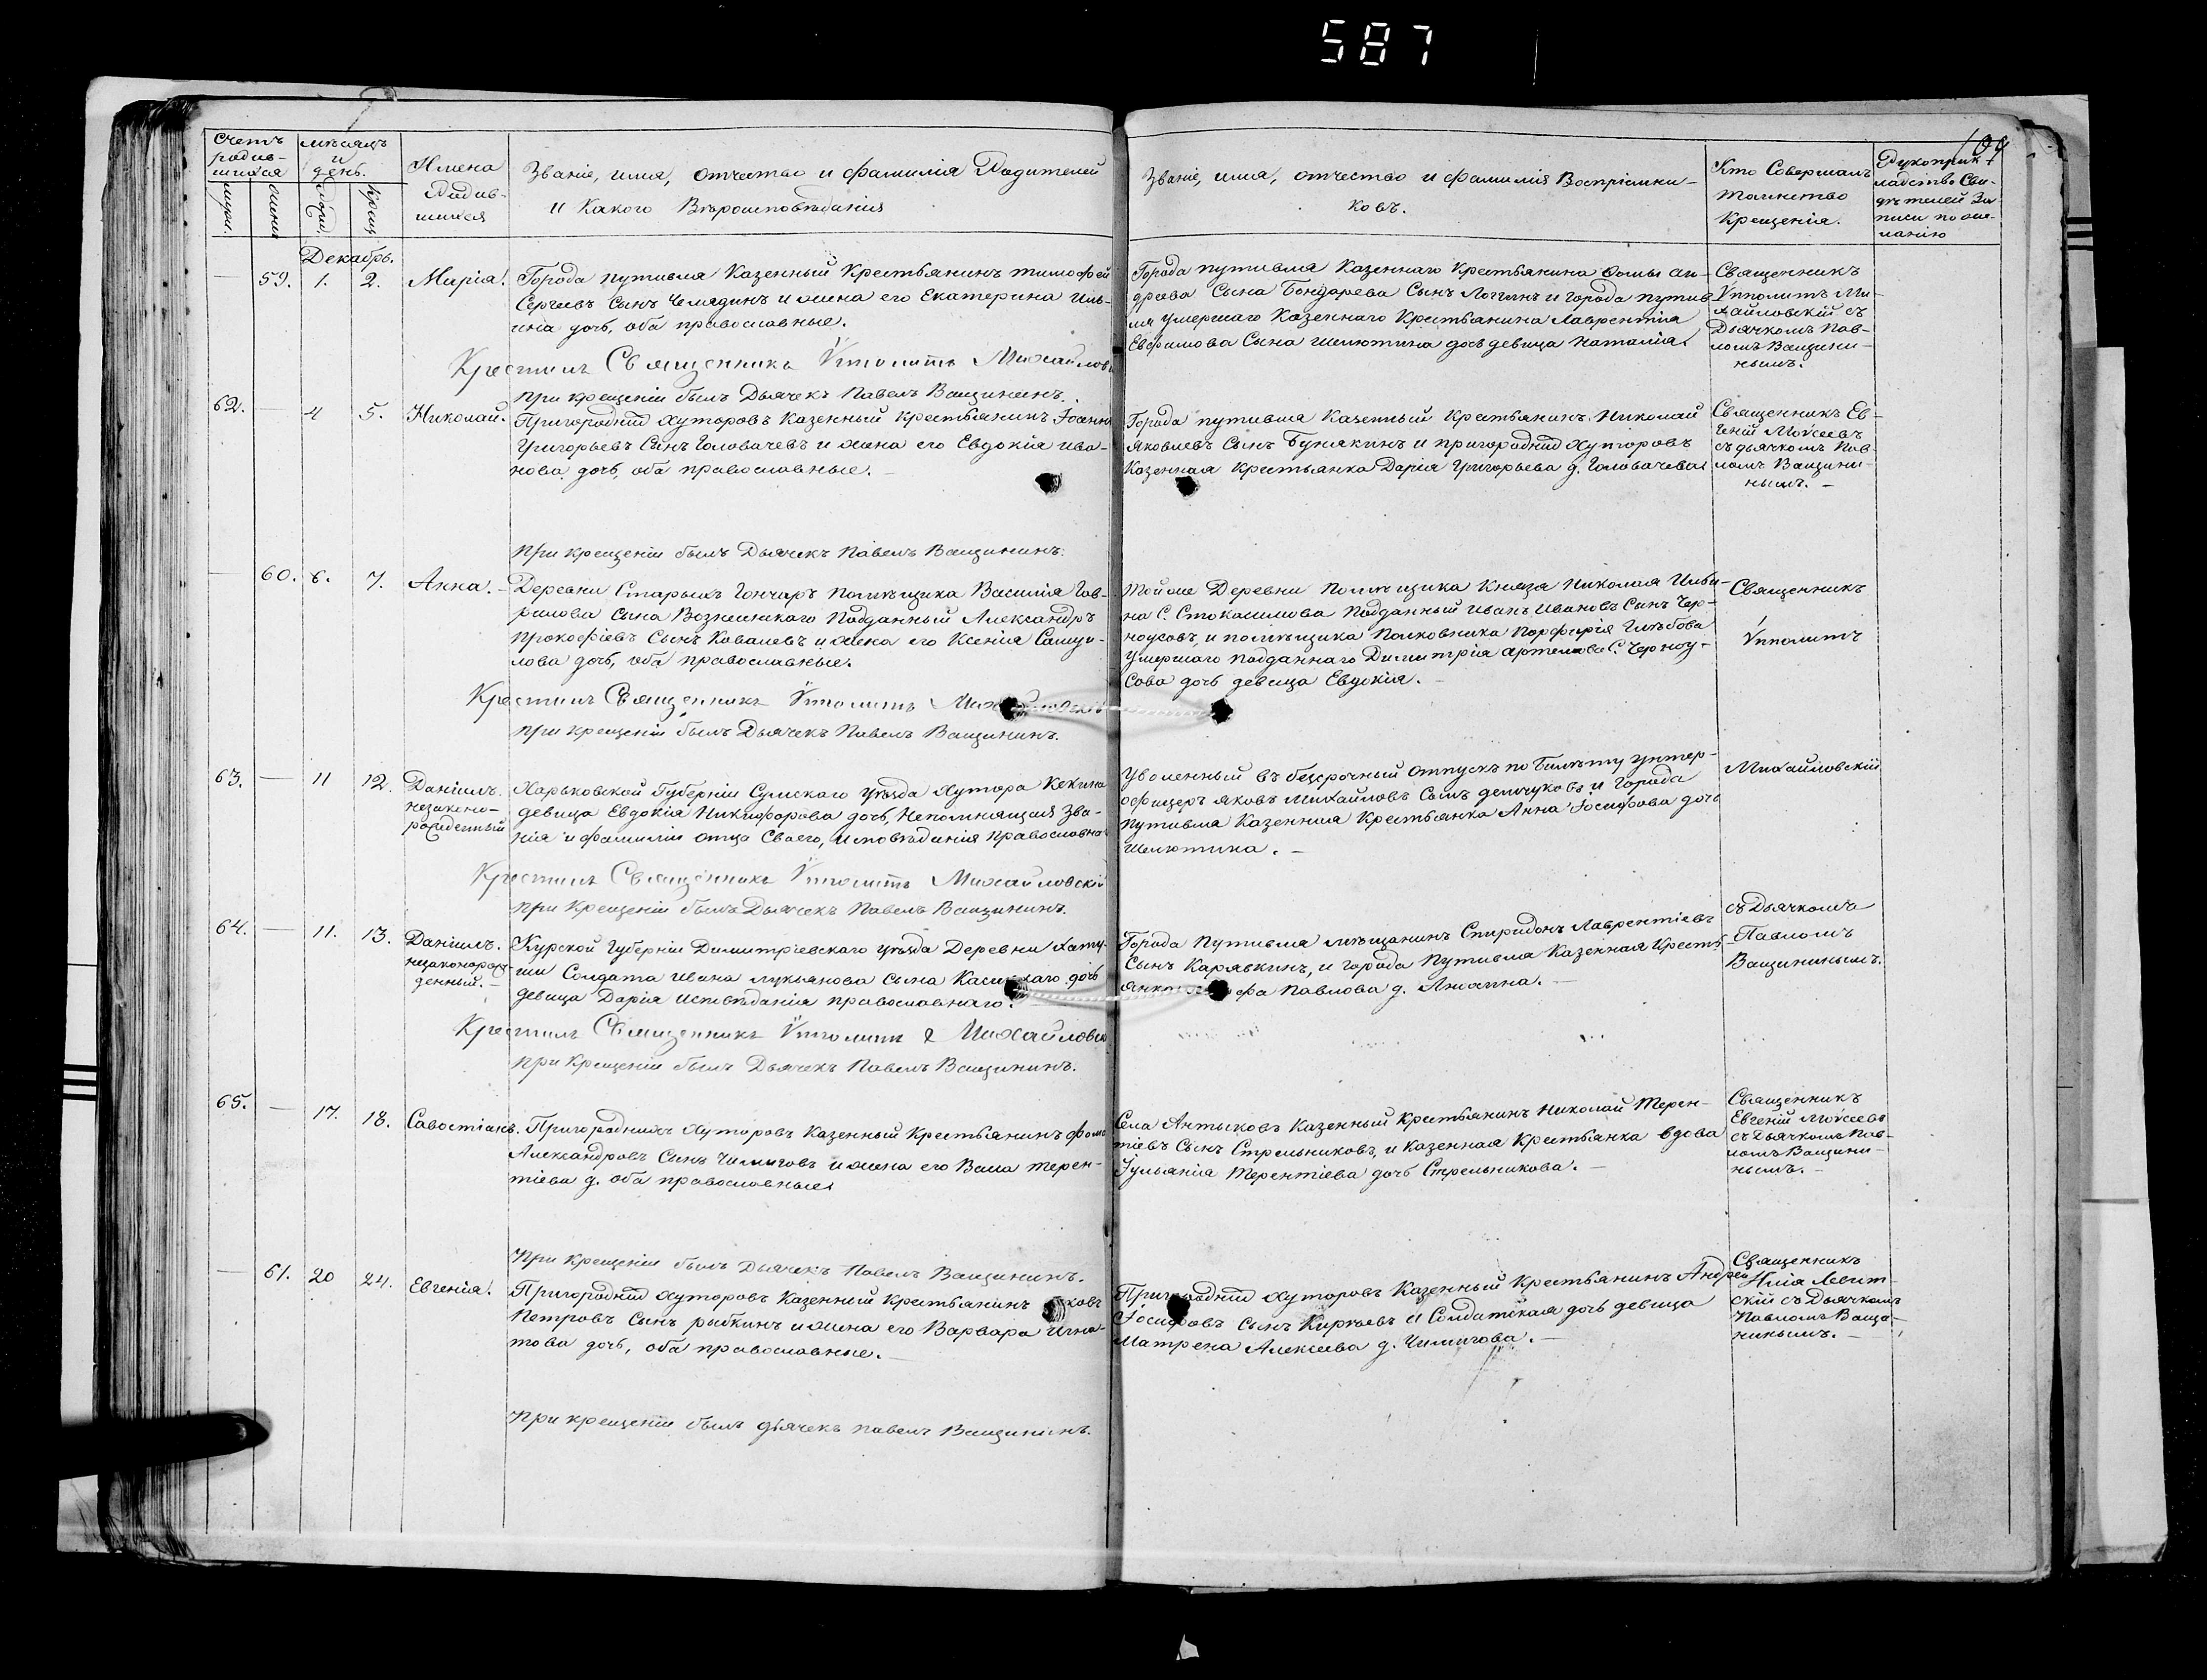 587
109
Счетъ родив-
шихся
мѣсяцъ
и
день.
Имена
Родив-
шихся
Званіе, имя, отчество и фамилія Родителей
и какого Вѣроисповѣданія
Званіе, имя, отчество и фамилія Воспріемни-
ковъ.
Кто Совершалъ
таинство
Крещенія.
Рукоприк-
ладство Сви-
дѣтелей За-
писи по же-
ланію
Декабрь.
59. 1. 2. Марія.
Города путивля Казенный Крестьянинъ тимофей
Сергѣевъ Сынъ Челядинъ и жена его Екатерина Иль-
ина дочь, оба православные.
Крестилъ Священникъ Ѵпполитъ Михайлов
при крещеніи былъ Дьячекъ Павелъ Ващининъ.
Города путивля Казеннаго Крестьянина Ѳомы ан-
дреева Сына Бондарева Сынъ Логгинъ и города путив-
ля умершаго Казеннаго Крестьянина Лаврентія
Евфимова Сына Шелютина дочь девица Наталія.
Священникъ
Ѵпполитъ Ми-
хайловскій съ
Дьячкомъ Пав-
ломъ Ващини-
нымъ.
62. — 4 5. Николай.
Пригородныхъ Хуторовъ Казенный Крестьянинъ Іоаннъ
Григорьевъ Сынъ Головачевъ и жена его Евдокія ива-
нова дочь, оба православные. —
При крещеніи былъ Дьячекъ Павелъ Ващининъ.
Города путивля Казенный Крестьянинъ Николай
Яковлевъ Сынъ Бунякинъ и пригородныхъ Хуторовъ
Казенная Крестьянка Дарія Григорьева д. Головачева.
Священникъ Ев-
геній Моѵсеевъ
съ дьячкомъ Пав-
ломъ Ващини-
нымъ. —
— 60. 6. 7. Анна. —
Деревни Старыхъ Гончаръ Помѣщика Василія Гав-
рилова Сына Вознесенскаго Подданный Александръ
Прокофіевъ Сынъ Ковалевъ и жена его Ксенія Самуи-
лова дочь, оба православные.
Крестилъ Священникъ Ѵпполитъ Михайловскій
при крещеніи былъ Дьячекъ Павелъ Ващининъ.
Тойже Деревни Помѣщика Князя Николая Ильи-
на С. Стокасимова Подданный Иванъ Ивановъ Сынъ Чер-
ноусовъ, и помѣщика Полковника Порфирія Глѣбова
умершаго подданнаго Димитрія Артемова С. Черноу-
сова дочь девица Евдокія. —
Священникъ
Ѵпполитъ
63. — 11 12. Даніилъ.
незаконо-
рожденный
Харьковской Губерніи Сумскаго уѣзда Хутора Кекина
девица Евдокія Никифорова дочь, Непомнящая Зва-
нія и фамиліи отца Своего, исповѣданія православна
Крестилъ Священникъ Ѵпполитъ Михайловскій
при Крещеніи былъ Дьячекъ Павелъ Ващининъ.
Уволенный въ безсрочный отпускъ по Билету унтер-
офицеръ Яковъ Михайловъ Сынъ демчуковъ и Города
Путивля Казенная Крестьянка Анна Іосифова дочь
Шелютина. —
Михайловскій
64. — 11. 13. Даніилъ.
незаконорож-
денный. —
Курской Губерніи Димитріевскаго уѣзда Деревни Хату-
ши Солдата Ивана лукьянова Сына дочь
девица Дарія исповѣданія православнаго.
Крестилъ Священникъ Ѵпполитъ Михайловск
при Крещеніи былъ Дьячекъ Павелъ Ващининъ.
Города Путивля мѣщанинъ Спиридонъ Лаврентіевъ
Сынъ Карявкинъ, и города Путивля Казенная Кресть-
янка Павлова д. Анохина. —
съ Дьячкомъ
Павломъ
Ващининымъ.
65. — 17. 18. Савостіанъ.
Пригородныхъ Хуторовъ Казенный Крестьянинъ Фома
Александровъ Сынъ Чимиговъ и жена его Васса терен-
тіева д. оба православные
При крещеніи былъ Дьячекъ Павелъ Ващининъ.
Села Антыковъ Казенный Крестьянинъ Николай Терен-
тіевъ Сынъ Стрельниковъ, и Казенная Крестьянка вдова
Іуліанія Терентіева дочь Стрельникова. —
Священникъ
Евгеній Моѵсеевъ
съ Дьячкомъ Пав-
ломъ Ващини-
нымъ. —
— 61. 20 24. Евгенія.
Пригородныхъ Хуторовъ Казенный Крестьянинъ ковъ
Петровъ Сынъ рыбкинъ и жена его Варвара Игна-
това дочь, оба православные. —
При крещеніи былъ дьячекъ павелъ Ващининъ.
Пригородныхъ Хуторовъ Казенный Крестьянинъ Андрей
Іосифовъ Сынъ Киреевъ и Солдатская дочь девица
Матрена Алексеева д. Чимигова. —
Священникъ
Илія Левит-
скій съ Дьячкомъ
Павломъ Ващи-
нинымъ. —